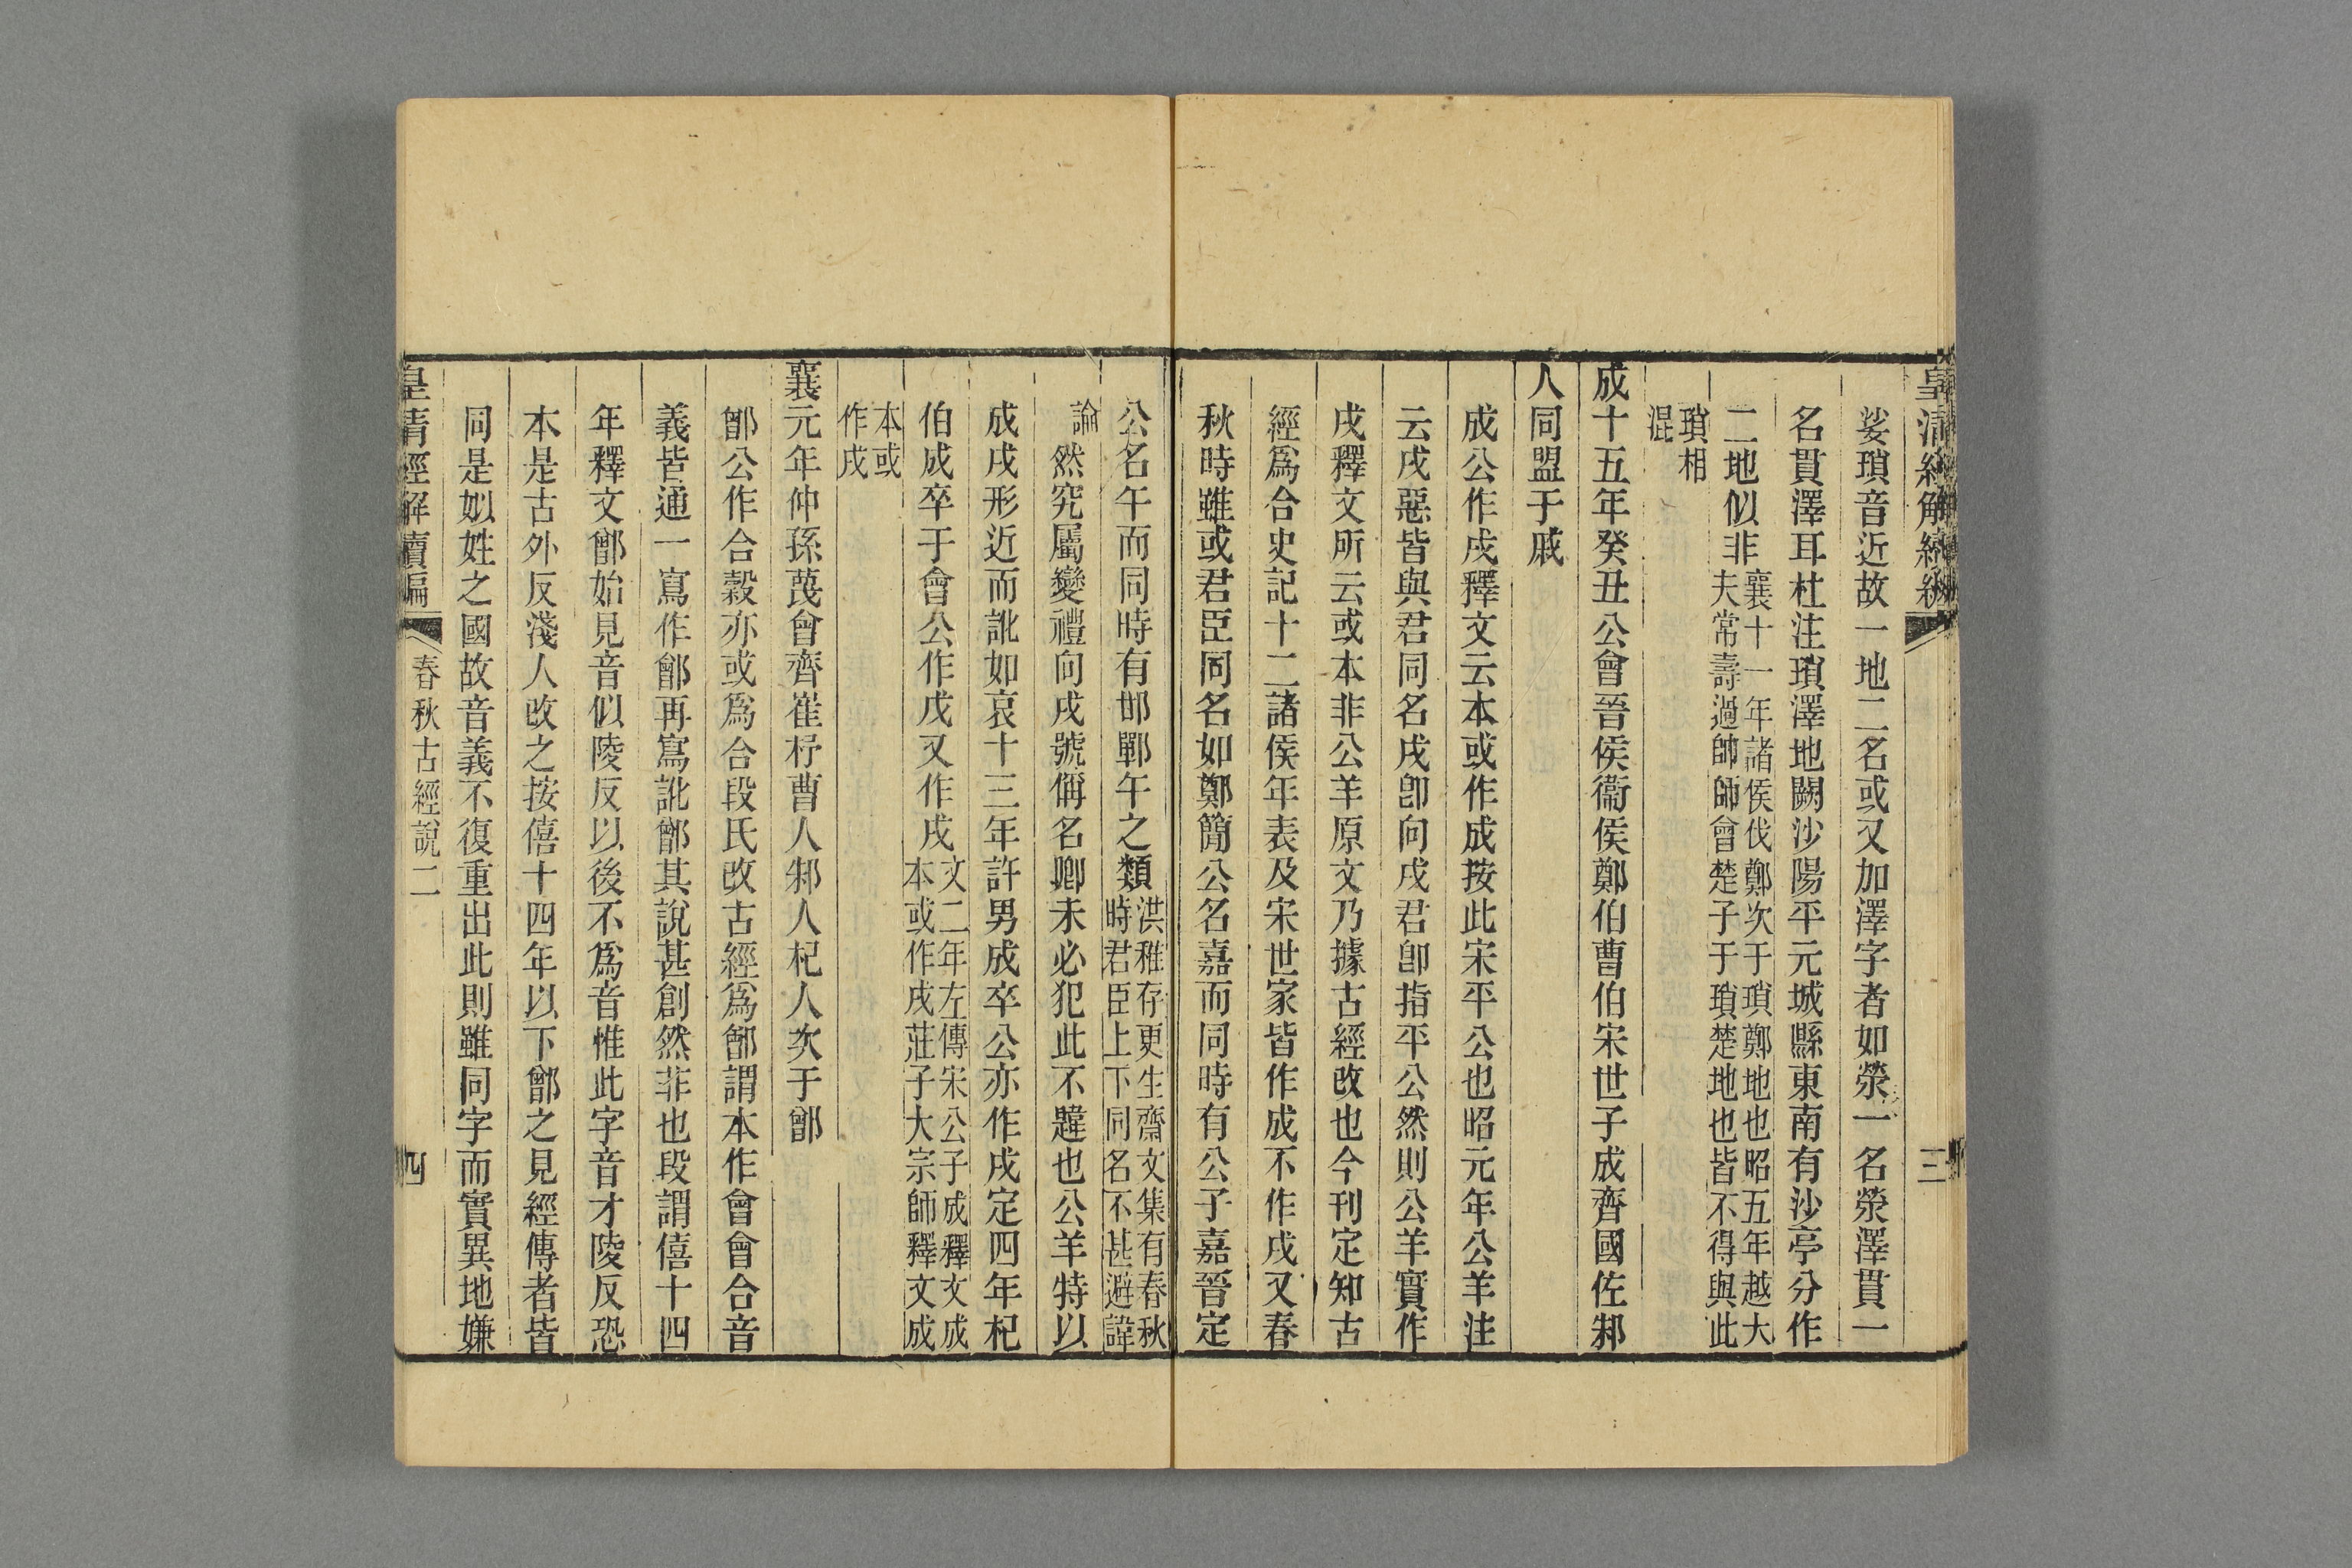 皇清經解續編
三
娑瑣音近故一地二名或又加澤字者如滎一名滎澤貫一
名貫澤耳杜注瑣澤地闕沙陽平元城縣東南有沙亭分作
二地似非襄十一年諸侯伐鄭次于瑣鄭地也昭五年越大
夫常壽過帥師會楚子于瑣楚地也皆不得與此
瑣相
混
成十五年癸丑公會晉侯衞侯鄭伯曹伯宋世子成齊國佐邾
人同盟于戚
成公作戌釋文云本或作成按此宋平公也昭元年公羊注
云戌惡皆與君同名戌卽向戌君卽指平公然則公羊實作
戌釋文所云或本非公羊原文乃據古經改也今刊定知古
經爲合史記十二諸侯年表及宋世家皆作成不作戌又春
秋時雖或君臣同名如鄭簡公名嘉而同時有公子嘉晉定
公名午而同時有邯鄲午之類洪稚存更生齋文集有春秋
時君臣上下同名不甚避諱
論然究屬變禮向戌號偁名卿未必犯此不韙也公羊特以
成戌形近而訛如哀十三年許男成卒公亦作戌定四年杞
伯成卒于會公作戊又作戌文二年左傳宋公子成釋文成
本或作戌莊子大宗師釋文成
本或
作戌
襄元年仲孫蔑會齊崔杼曹人邾人杞人次于鄫
鄫公作合穀亦或爲合段氏改古經爲鄫謂本作會會合音
義皆通一寫作鄫再寫訛鄫其說甚創然非也段謂僖十四
年釋文鄫始見音似陵反以後不爲音惟此字音才陵反恐
本是古外反淺人改之按僖十四年以下鄫之見經傳者皆
同是姒姓之國故音義不復重出此則雖同字而實異地嫌
皇清經解續編
春秋古經說二
四